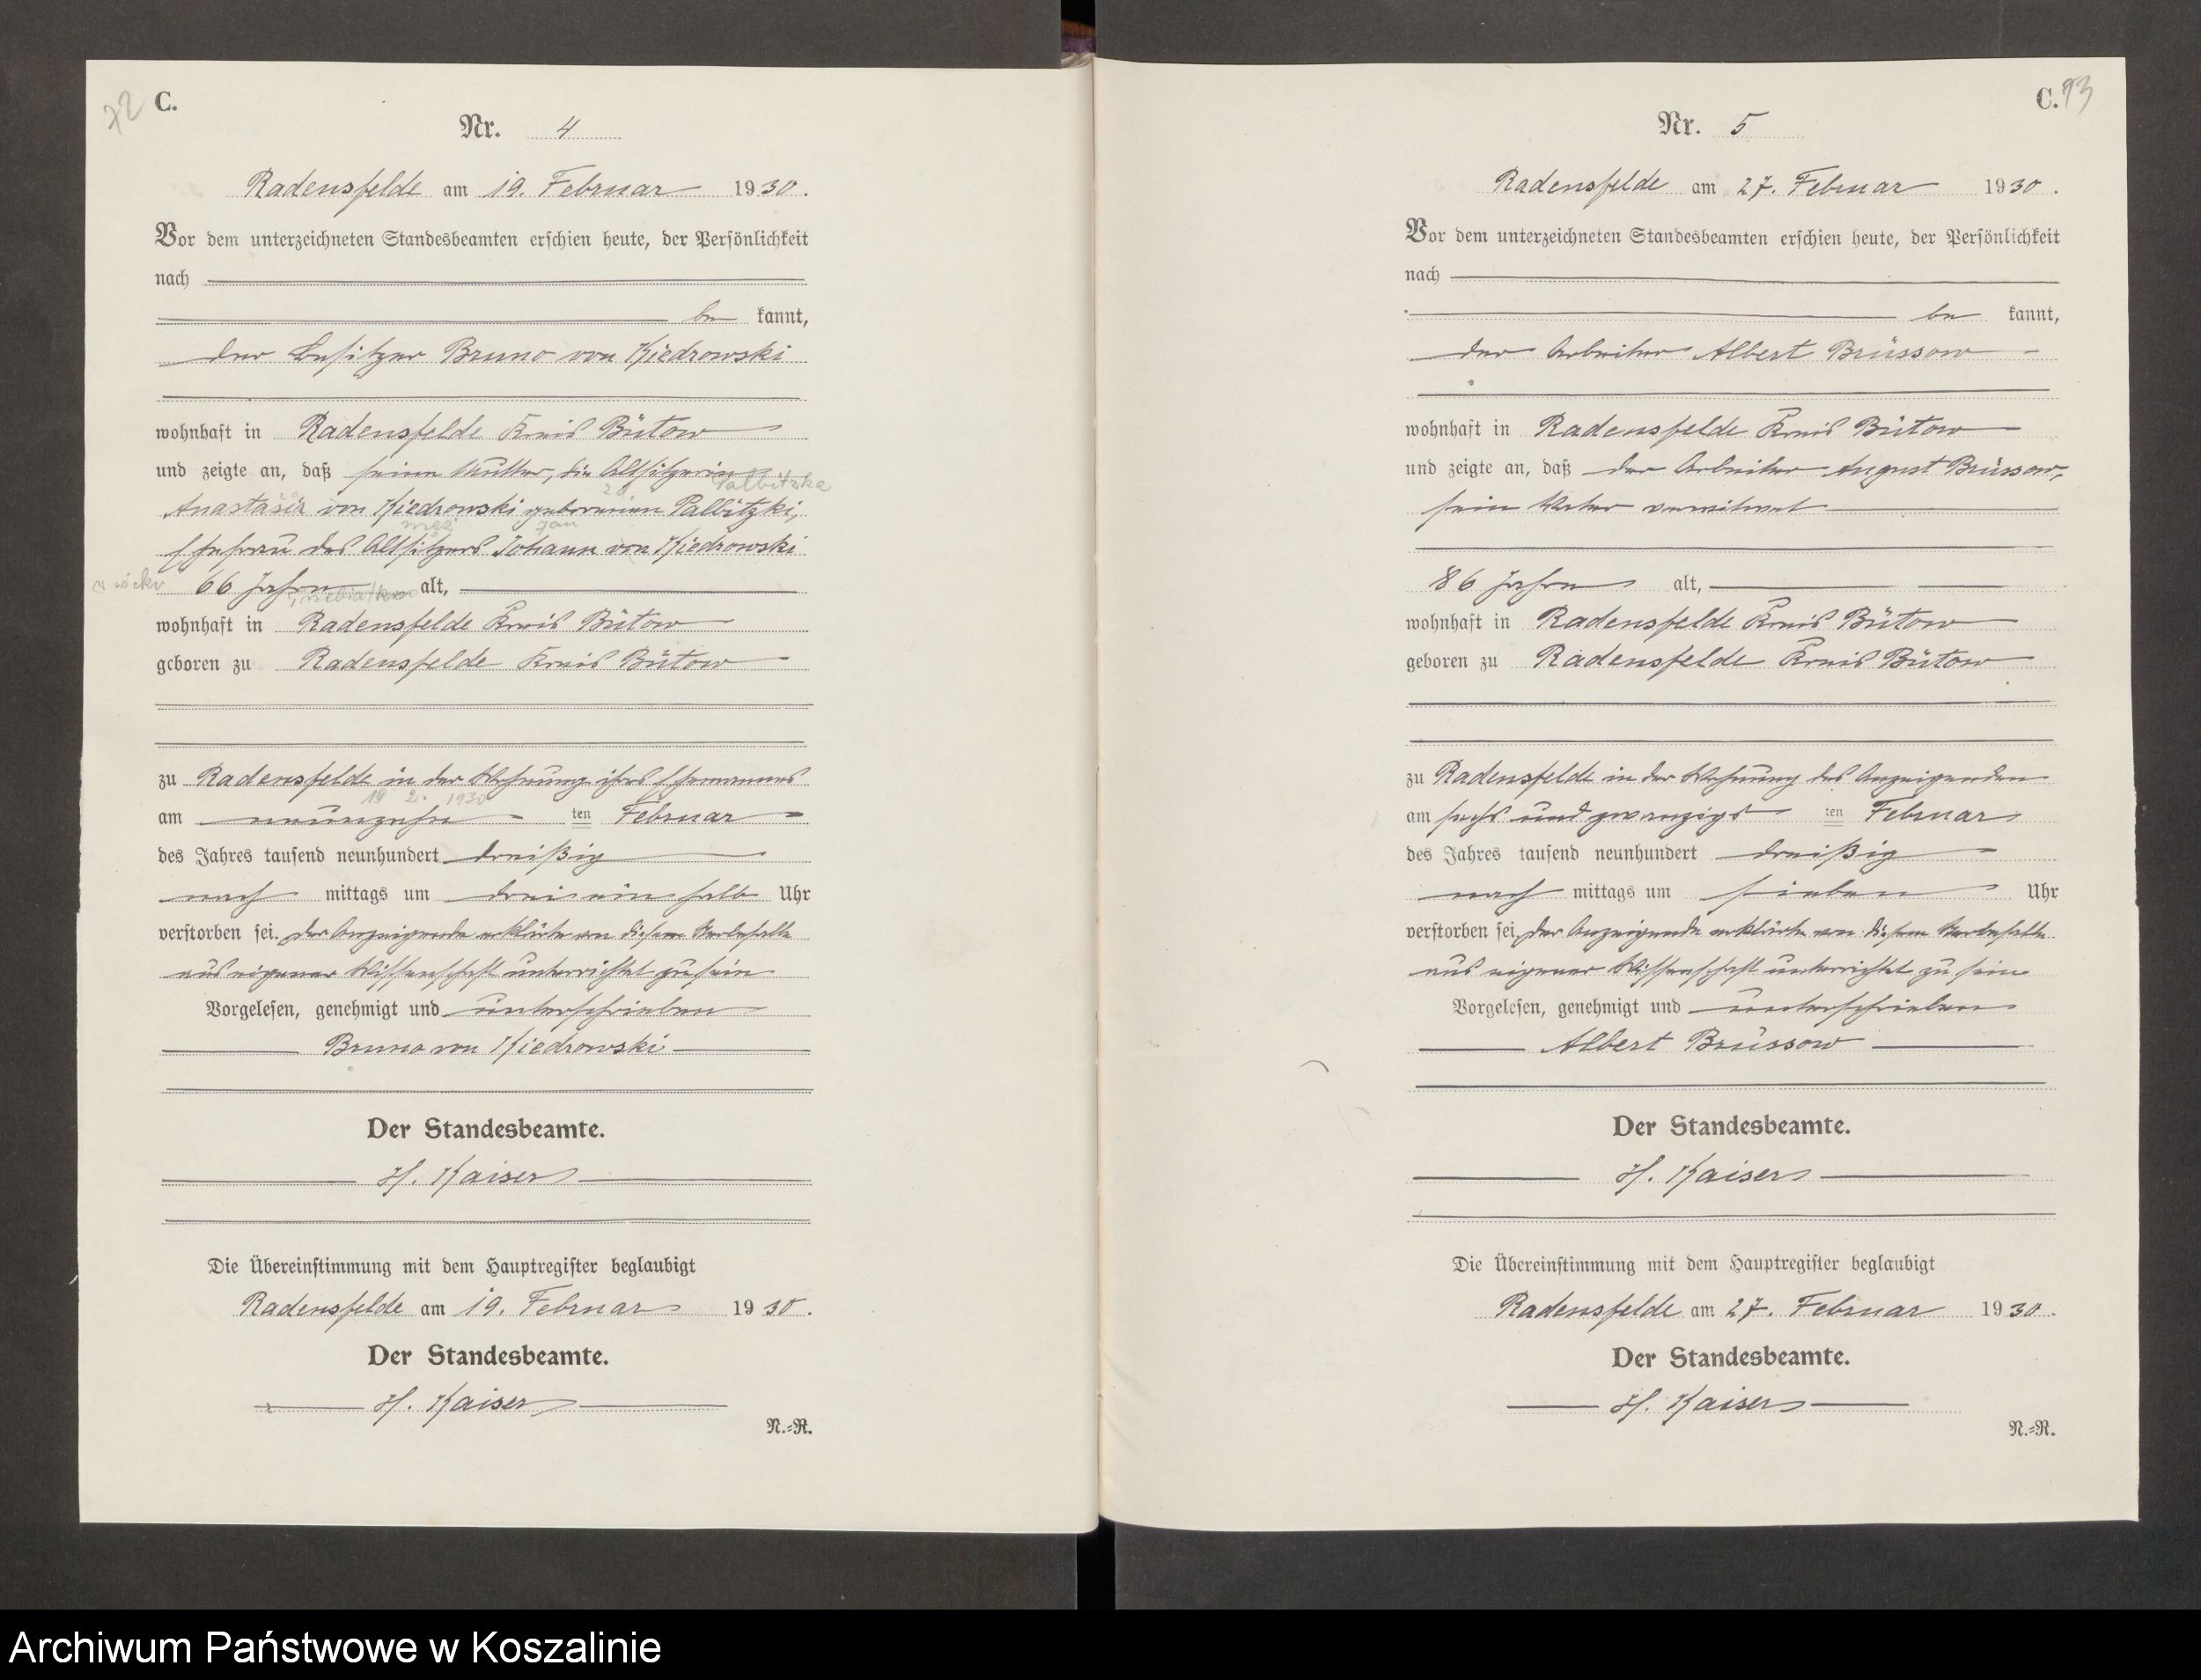 72 C.
Nr. 4
Radensfelde am 19. Februar 1930.
Vor dem unterzeichneten Standesbeamten erschien heute, der Persönlichkeit
nach
be kannt,
der Besitzer Bruno von Kiedrowski
wohnhaft in Radensfelde Kreis Bütow
und zeigte an, daß seine Mutter, die Altsitzerin
Palbitzka
Anastasia von Kiedrowski geborenen Palbitzki,
mąż Jan
Ehefrau des Altsitzers Johann von Kiedrowski
66 Jahre alt,
wohnhaft in Radensfelde Kreis Bütow
geboren zu Radensfelde Kreis Bütow
zu Radensfelde in der Wohnung ihres Ehemannes
19 2. 1930
am neunzehn ten Februar
des Jahres tausend neunhundert dreißig
nach mittags um drei ein halb Uhr
verstorben sei. Der Anzeigende erklärte von diesem Sterbefalle
aus eigener Wissenschaft unterrichtet zu sein
Vorgelesen, genehmigt und unterschrieben
Bruno von Kiedrowski
Der Standesbeamte.
H. Kaiser
Die Übereinstimmung mit dem Hauptregister beglaubigt
Radensfelde am 19. Februar 1930.
Der Standesbeamte.
H. Kaiser
N.=R.
C. 73
Nr. 5
Radensfelde am 27. Februar 1930.
Vor dem unterzeichneten Standesbeamten erschien heute, der Persönlichkeit
nach
be kannt,
der Arbeiter Albert Brüssow
wohnhaft in Radensfelde Kreis Bütow
und zeigte an, daß der Arbeiter August Brüssow,
sein Vater verwitwet
86 Jahre alt,
wohnhaft in Radensfelde Kreis Bütow
geboren zu Radensfelde Kreis Bütow
zu Radensfelde in der Wohnung des Anzeigenden
am sechs und zwanzigs ten Februar
des Jahres tausend neunhundert dreißig
nach mittags um sieben Uhr
verstorben sei. Der Anzeigende erklärte von diesem Sterbefalle
aus eigener Wissenschaft unterrichtet zu sein
Vorgelesen, genehmigt und unterschrieben
Albert Brüssow
Der Standesbeamte.
H. Kaiser
Die Übereinstimmung mit dem Hauptregister beglaubigt
Radensfelde am 27. Februar 1930.
Der Standesbeamte.
H. Kaiser
N.=R.
Archiwum Państwowe w Koszalinie